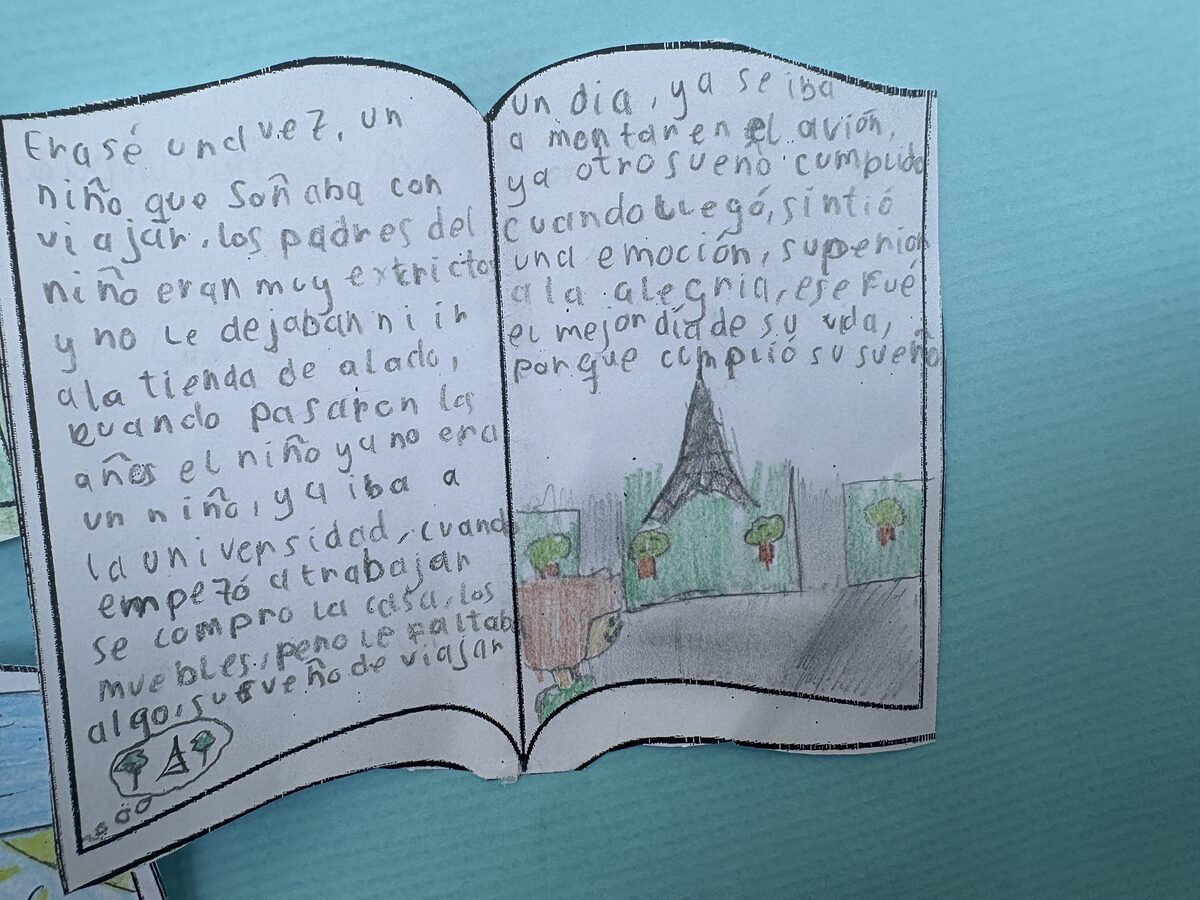 Erasé una vez, un
niño que soñaba con
viajar, los padres del
niño eran muy extrictos
y no le dejaban ni ir
ala tienda de alado,
cuando pasaron los
años el niño ya no era
un niño, ya iba a
la universidad, cuando
empezó a trabajar
se compro la casa, los
muebles, pero le faltaba
algo, su sueño de viajar
un dia, ya se iba
a montar en el avión,
ya otro sueño cumplido
cuando llegó, sintió
una emoción, superior
a la alegria, ese fué
el mejor día de su vida,
porque cumplió su sueño